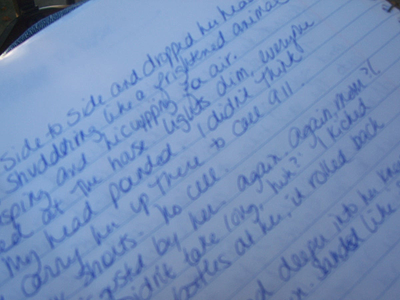 side to side and dropped her head
shuddering like a frightened animal
and hiccupping for air.
at the house lights dim, everyone
My head pounded. I didn't think
carry her up there to call 911.
shouts. No cell.
by her. again, again, mom?!
Didn't take long, huh? I kicked
bottles at her, it rolled back
deeper into her
like